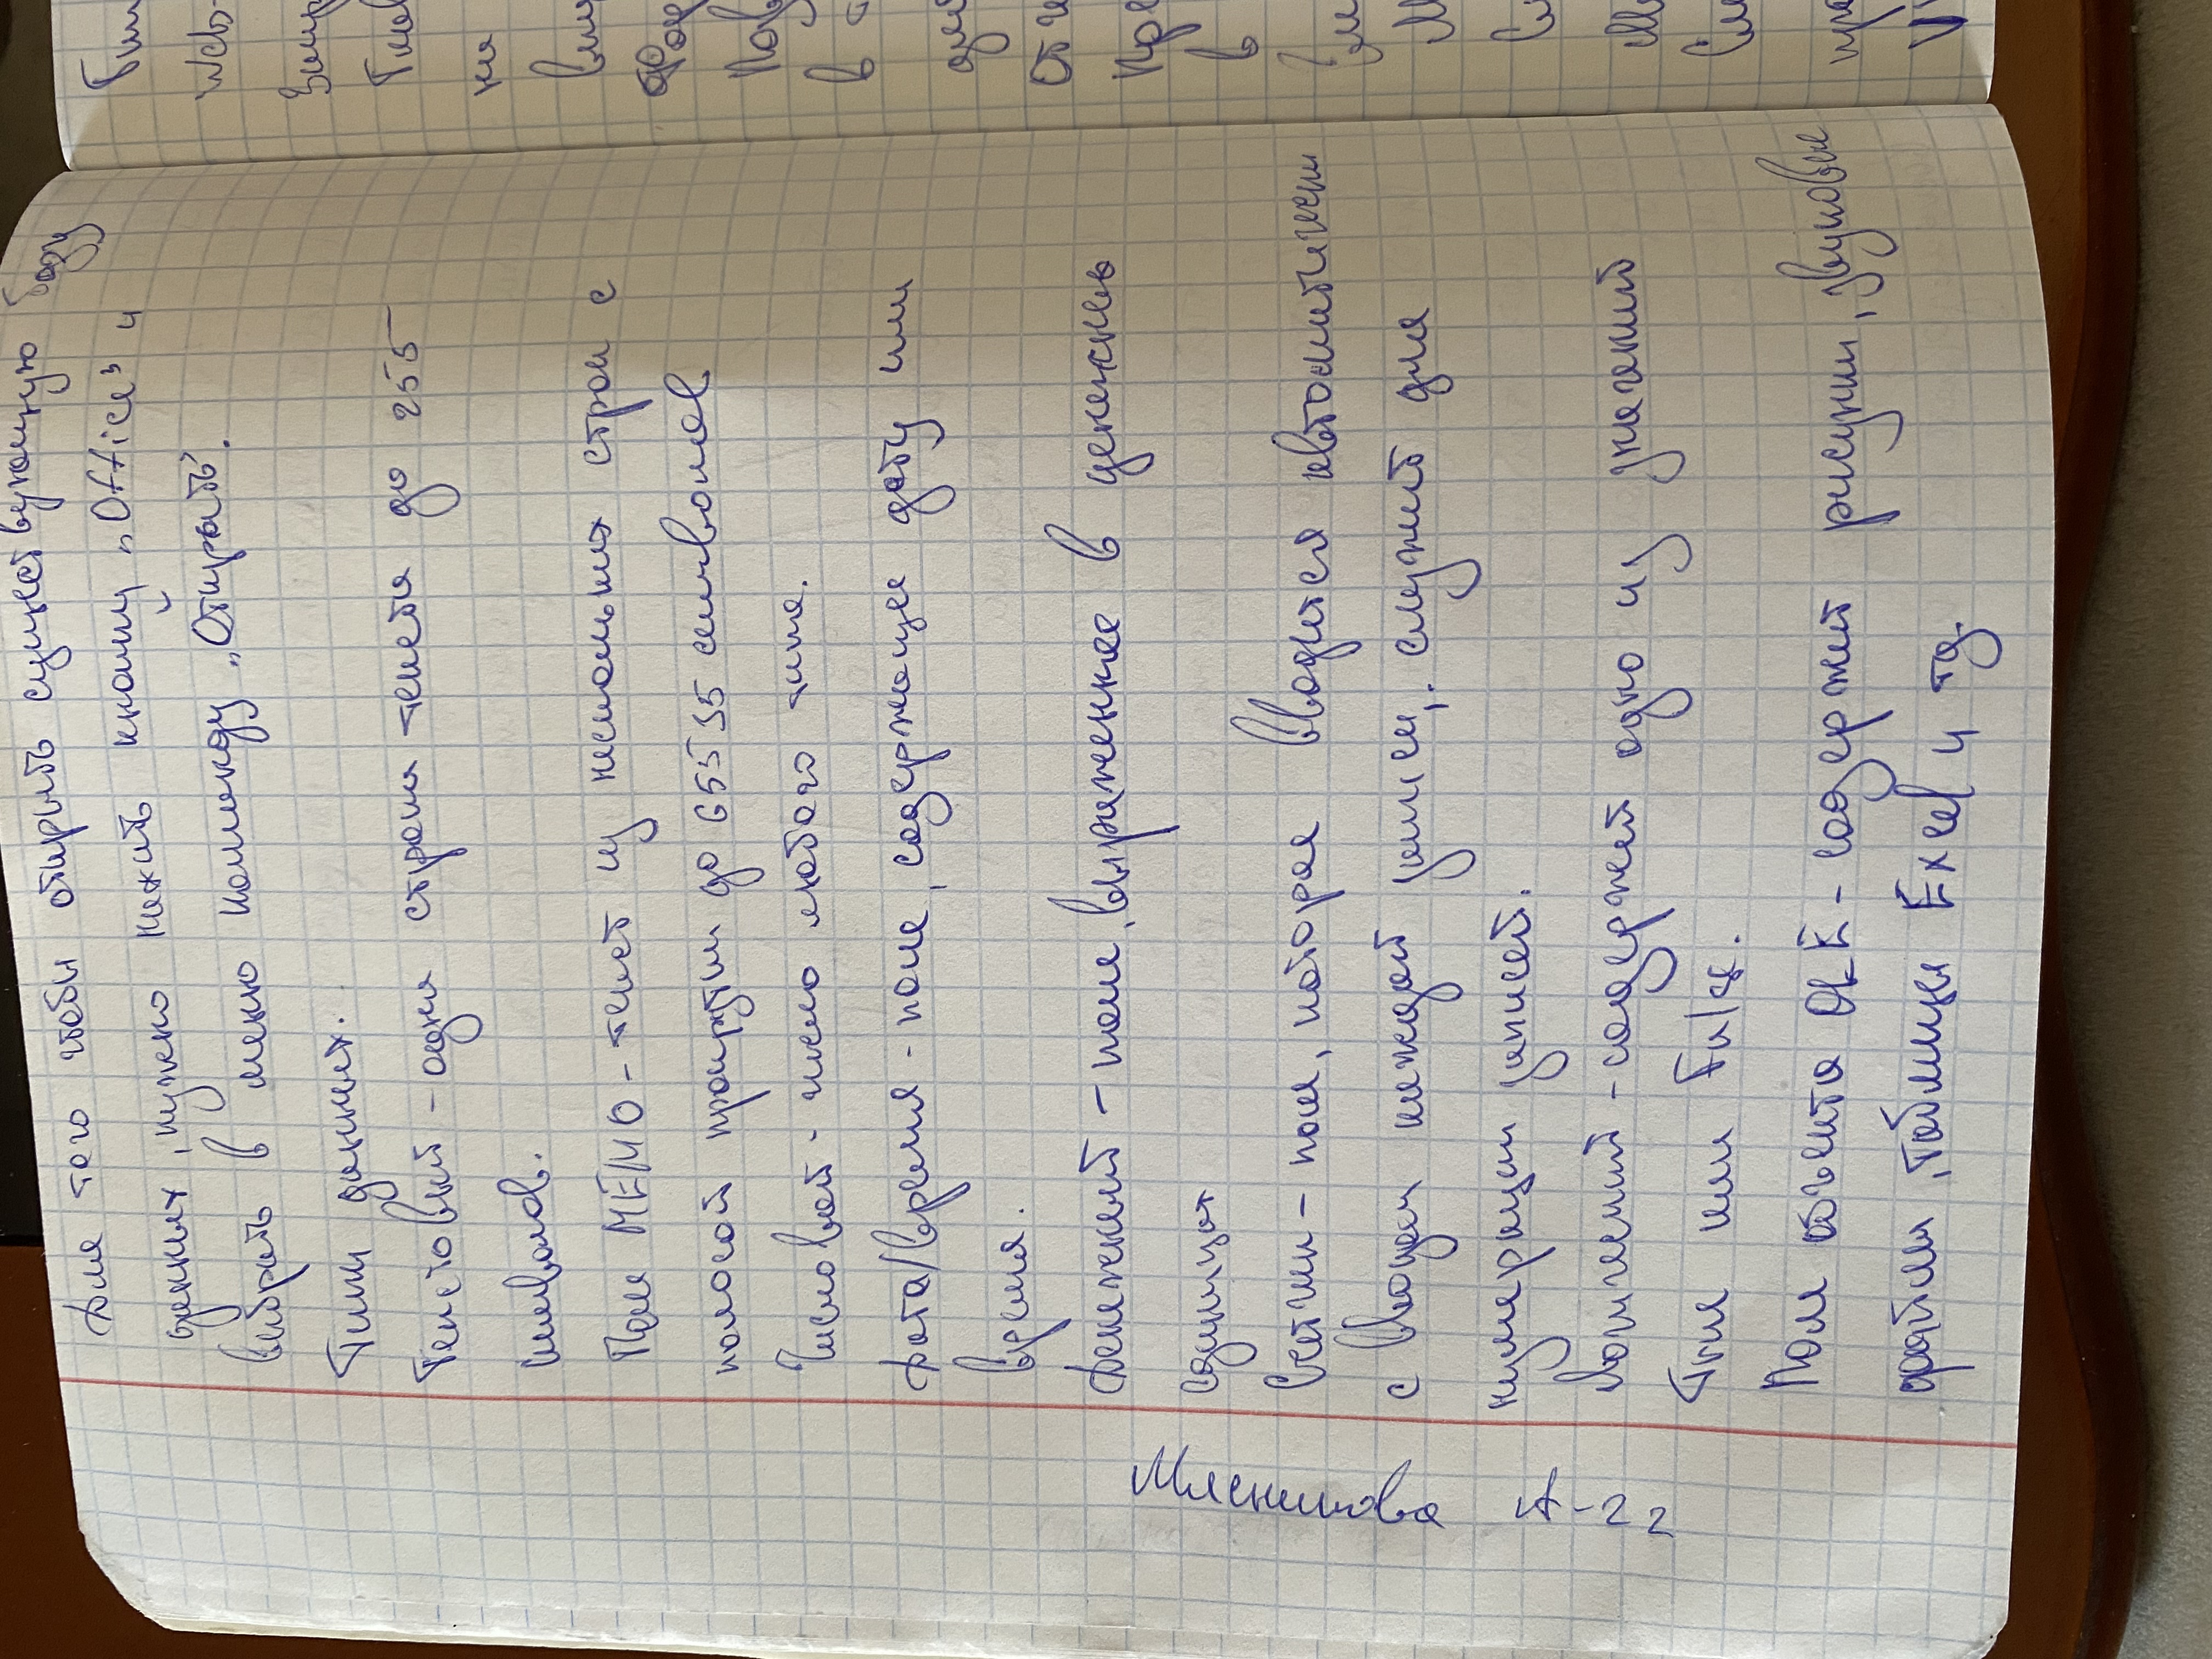 Для того чтобы открыть существующую базу
данных, нужно нажать кнопку „Office" и
выбрать в меню команду „Открыть".
Типы данных.
Текстовый - одна строка текста до 255
символов.
Поле МЕМО - текст из нескольких строк с
полосой прокрутки до 65535 символов
Числовой - число любого типа.
Дата/время - поле, содержащее дату или
время.
Денежный - поле, выраженное в денежных
единицах
Счетчик - поле, которое вводится автоматически
с вводом каждой записи, служит для
нумерации записей.
Логический - содержит одно из значений
True или False.
Поле объекта OLE - содержит рисунки, звуковые
файлы, таблицы Excel и тд.
Мясникова А-22
Тип
Web-
на
в
От
в